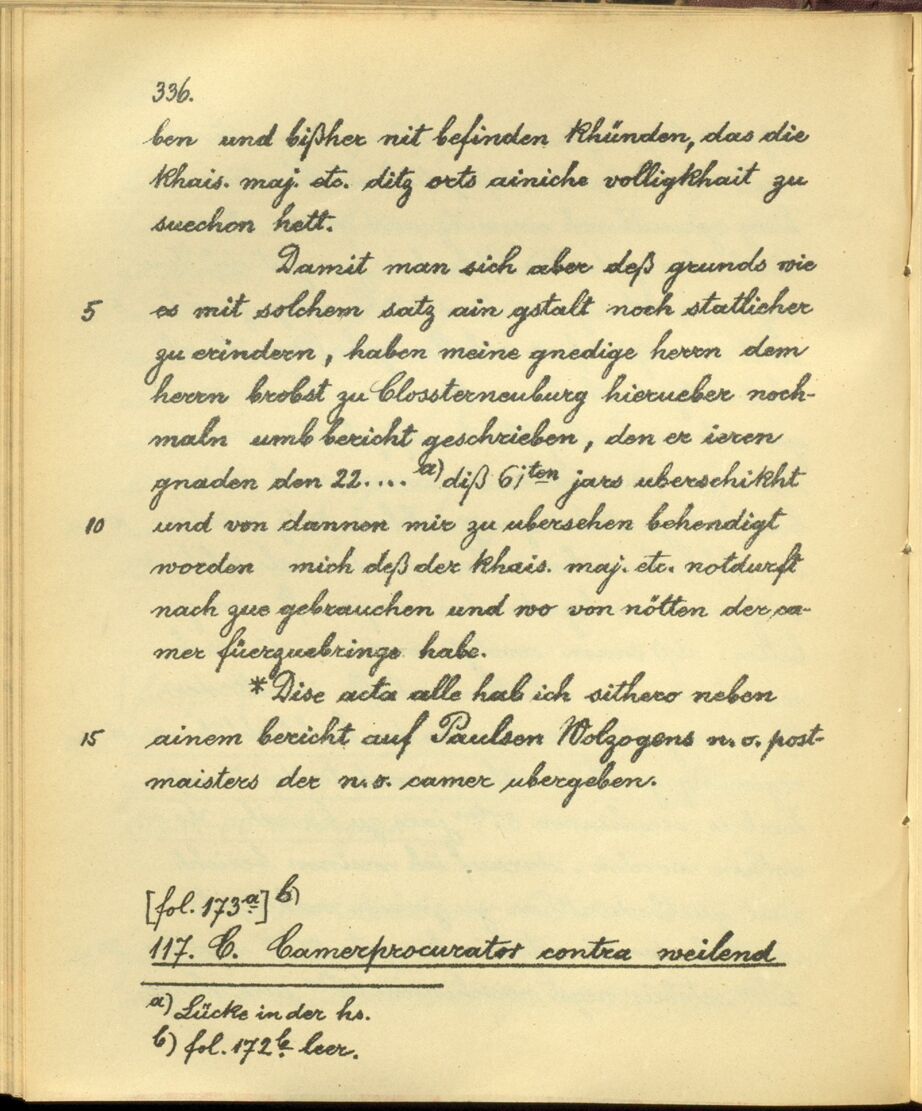 336.
ben und bißher nit befinden khünden, das die
khais. maj. etc. ditz orts ainiche volligkhait zu
suechon hett.
Damit man sich aber deß grunds wie
5 es mit solchem satz ain gstalt noch statlicher
zu erindern, haben meine gnedige herrn dem
herrn brobst zu Clossterneuburg hierueber noch-
maln umb bericht geschrieben, den er ieren
gnaden den 22.... a) diß 61ten jars uberschikht
10 und von dannen mir zu ubersehen behendigt
worden mich deß der khais. maj. etc. notdurft
nach zue gebrauchen und wo von nötten der ca-
mer füerzuebringe habe.
* Dise acta alle hab ich sithero neben
15 ainem bericht auf Paulsen Wolzogens n. o. post-
maisters der n. o. camer ubergeben.
[fol. 173a] b)
117. C. Camerprocurator contra weilend
a) Lücke in der hs.
b) fol. 172b leer.